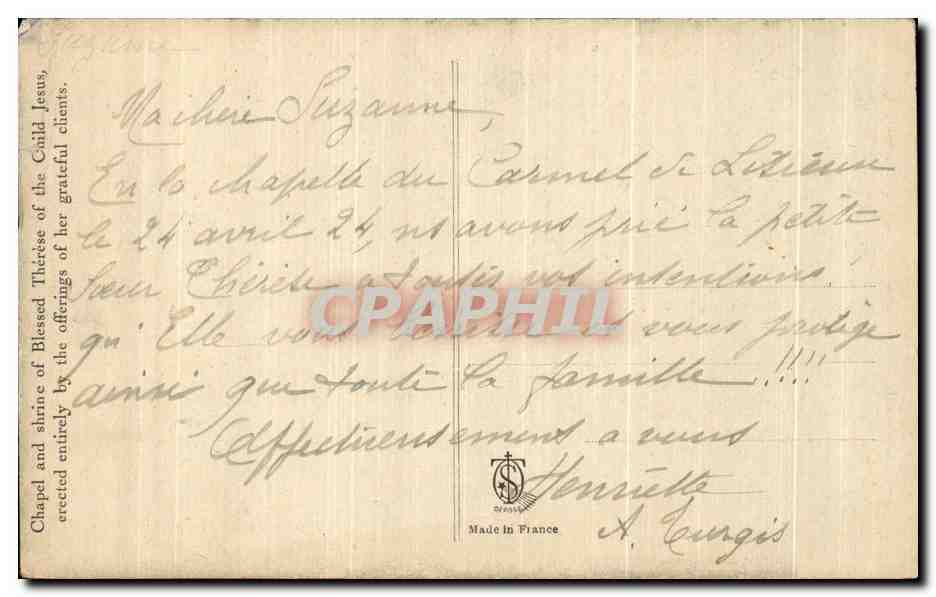 Suzanne
Chapel and shrine of Blessed Thérèse of the Child Jesus,
erected entirely by the offerings of her grateful clients.
Ma chère Suzanne,
En la chapelle du Carmel de Lisieux
le 24 avril 24, ns avons prié la petite
Sœur Thérèse à toutes vos intentions!
qu'Elle vous bénisse et vous protège
ainsi que toute la famille!!!!
Affectueusement a vous
Henriette
A. Turgis
CPAPHIL
DÉPOSÉ
Made in France